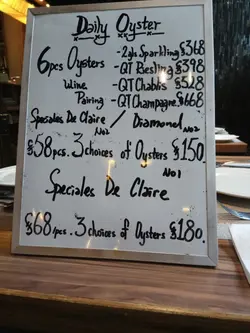 Daily Oyster
6pcs Oysters - 2gls Sparkling $368
- QT Riesling $398
Wine - QT Chablis $528
Pairing - QT Champagne $668
Speciales De Claire No2 / Diamond No2
$58 pc. 3 choices of Oysters $150
Speciales De Claire No1
$68 /pc. 3 choices of Oysters $180.